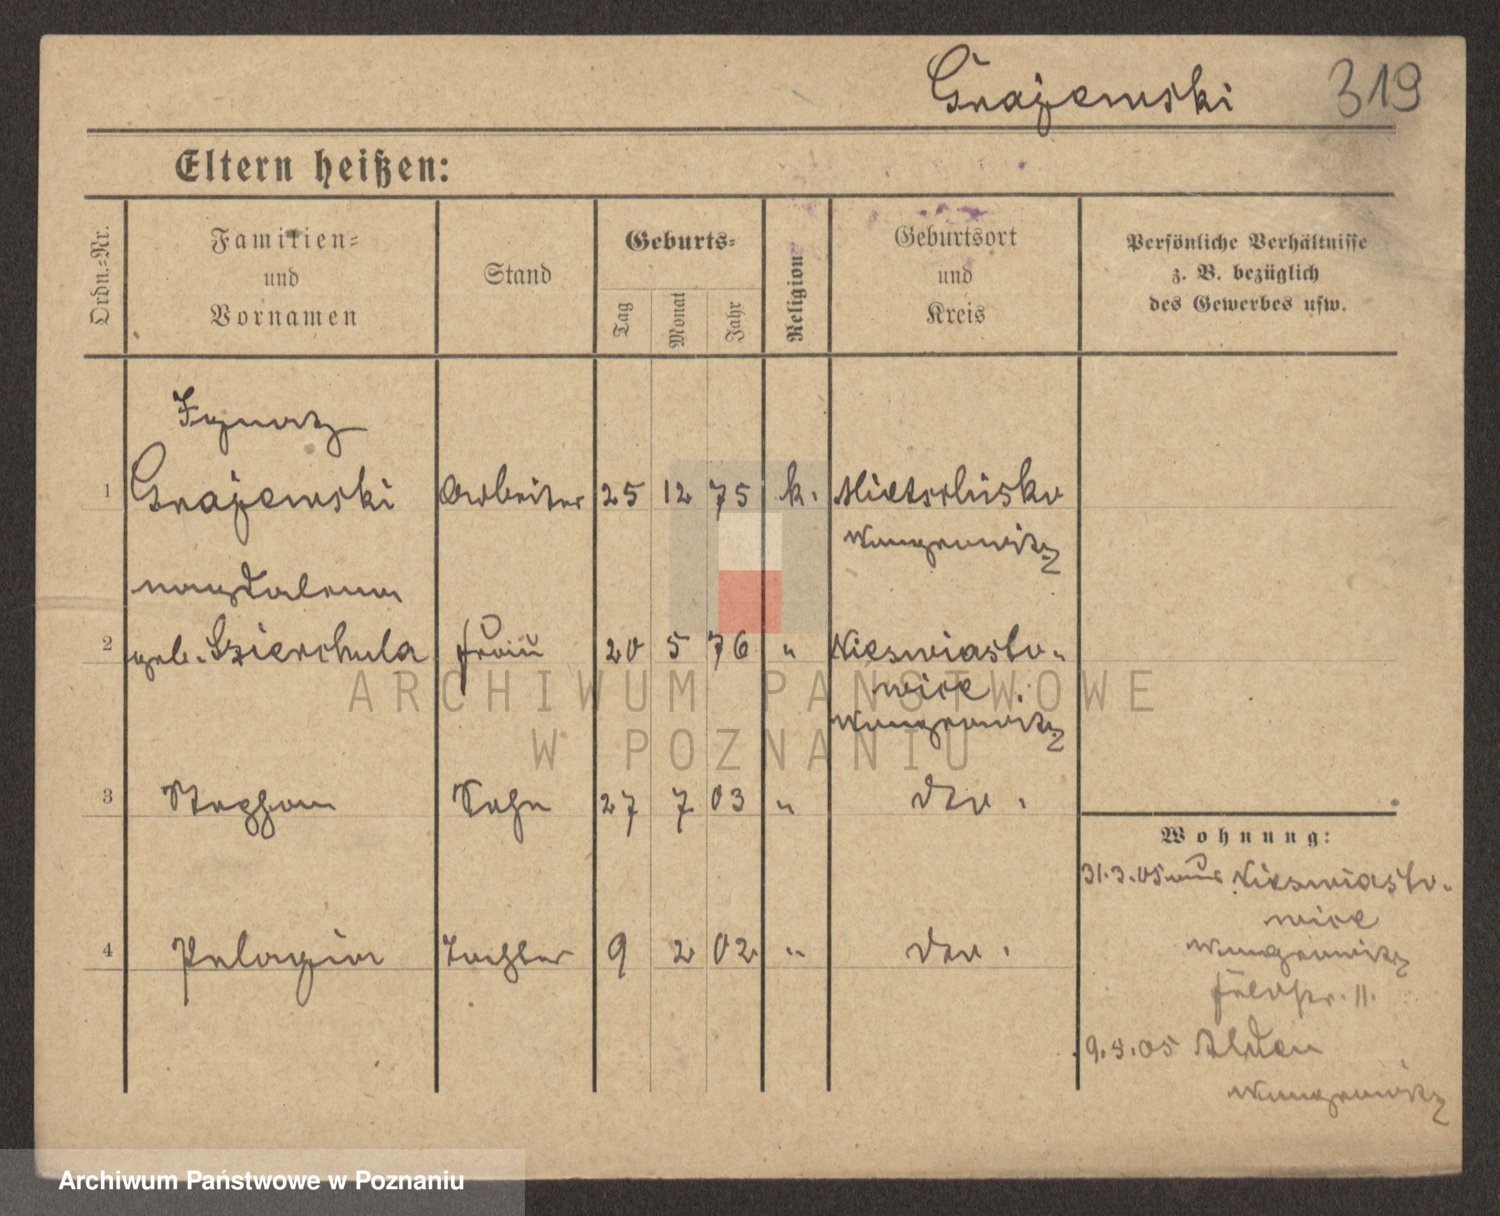 Grajewski 319
Eltern heißen:
Ordn.-Nr.
Familien-
und
Vornamen
Stand
Geburts-
Tag
Monat
Jahr
Religion
Geburtsort
und
Kreis
Persönliche Verhältnisse
z. B. bezüglich
des Gewerbes usw.
Ignatz
1 Grajewski Arbeiter 25 12 75 k. Mietschisko
Wongrowitz
Magdalena
2 geb. Szierchula Frau 20 5 76 " Nieswiasto-
wice
Wongrowitz
3 Stephan Sohn 27 7 03 " dto.
Wohnung:
31.3.05 aus Nieswiasto-
wice
Wongrowitz
4 Pelagia Tochter 9 2 02 " dto.
Feldstr. 11.
Wongrowitz
ARCHIWUM PAŃSTWOWE
W POZNANIU
Archiwum Państwowe w Poznaniu